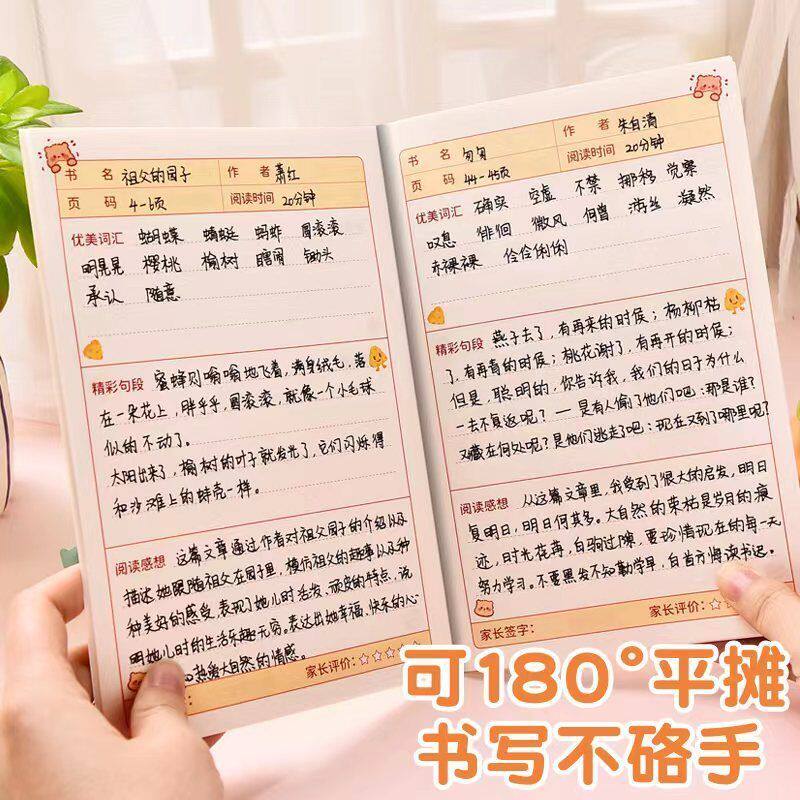 书 名 祖父的园子 作 者 萧红
页 码 4-6页 阅读时间 20分钟
优美词汇 蝴蝶 蜻蜓 蚂蚱 圆滚滚
明晃晃 樱桃 榆树 瞎闹 锄头
承认 随意
精彩句段 蜜蜂则嗡嗡地飞着，满身绒毛，落
在一朵花上，胖乎乎，圆滚滚，就像一个小毛球
似的不动了。
太阳出来了，榆树的叶子就发光了，它们闪烁得
和沙滩上的蚌壳一样。
阅读感想 这篇文章通过作者对祖父园子的介绍以及
描述她跟随祖父在园子里，模仿祖父的趣事以及种
种美好的感受，表现了她儿时活发，顽皮的特点，说
明她儿时的生活乐趣无穷。表达出她幸福、快乐的心
热爱大自然的情感。
家长评价：
书 名 匆匆 作 者 朱自清
页 码 44-45页 阅读时间 20分钟
优美词汇 确实 空虚 不禁 挪移 觉察
叹息 徘徊 微风 何曾 游丝 凝然
赤裸裸 伶伶俐俐
精彩句段 燕子去了，有再来的时候；杨柳枯
了，有再青的时候；桃花谢了，有再开的时候；
但是，聪明的，你告诉我，我们的日子为什么
一去不复返呢？一是有人偷了他们吧：那是谁？
又藏在何处呢？是他们逃走了吧：现在又到了哪里呢？
阅读感想 从这篇文章里，我受到了很大的启发，明日
复明日，明日何其多。大自然的荣枯是岁月的痕
迹，时光花苒，白驹过隙，要珍惜现在的每一天
努力学习。不要黑发不知勤学早，白首方悔读书迟。
家长签字： 家长评价：
可180°平摊
书写不硌手